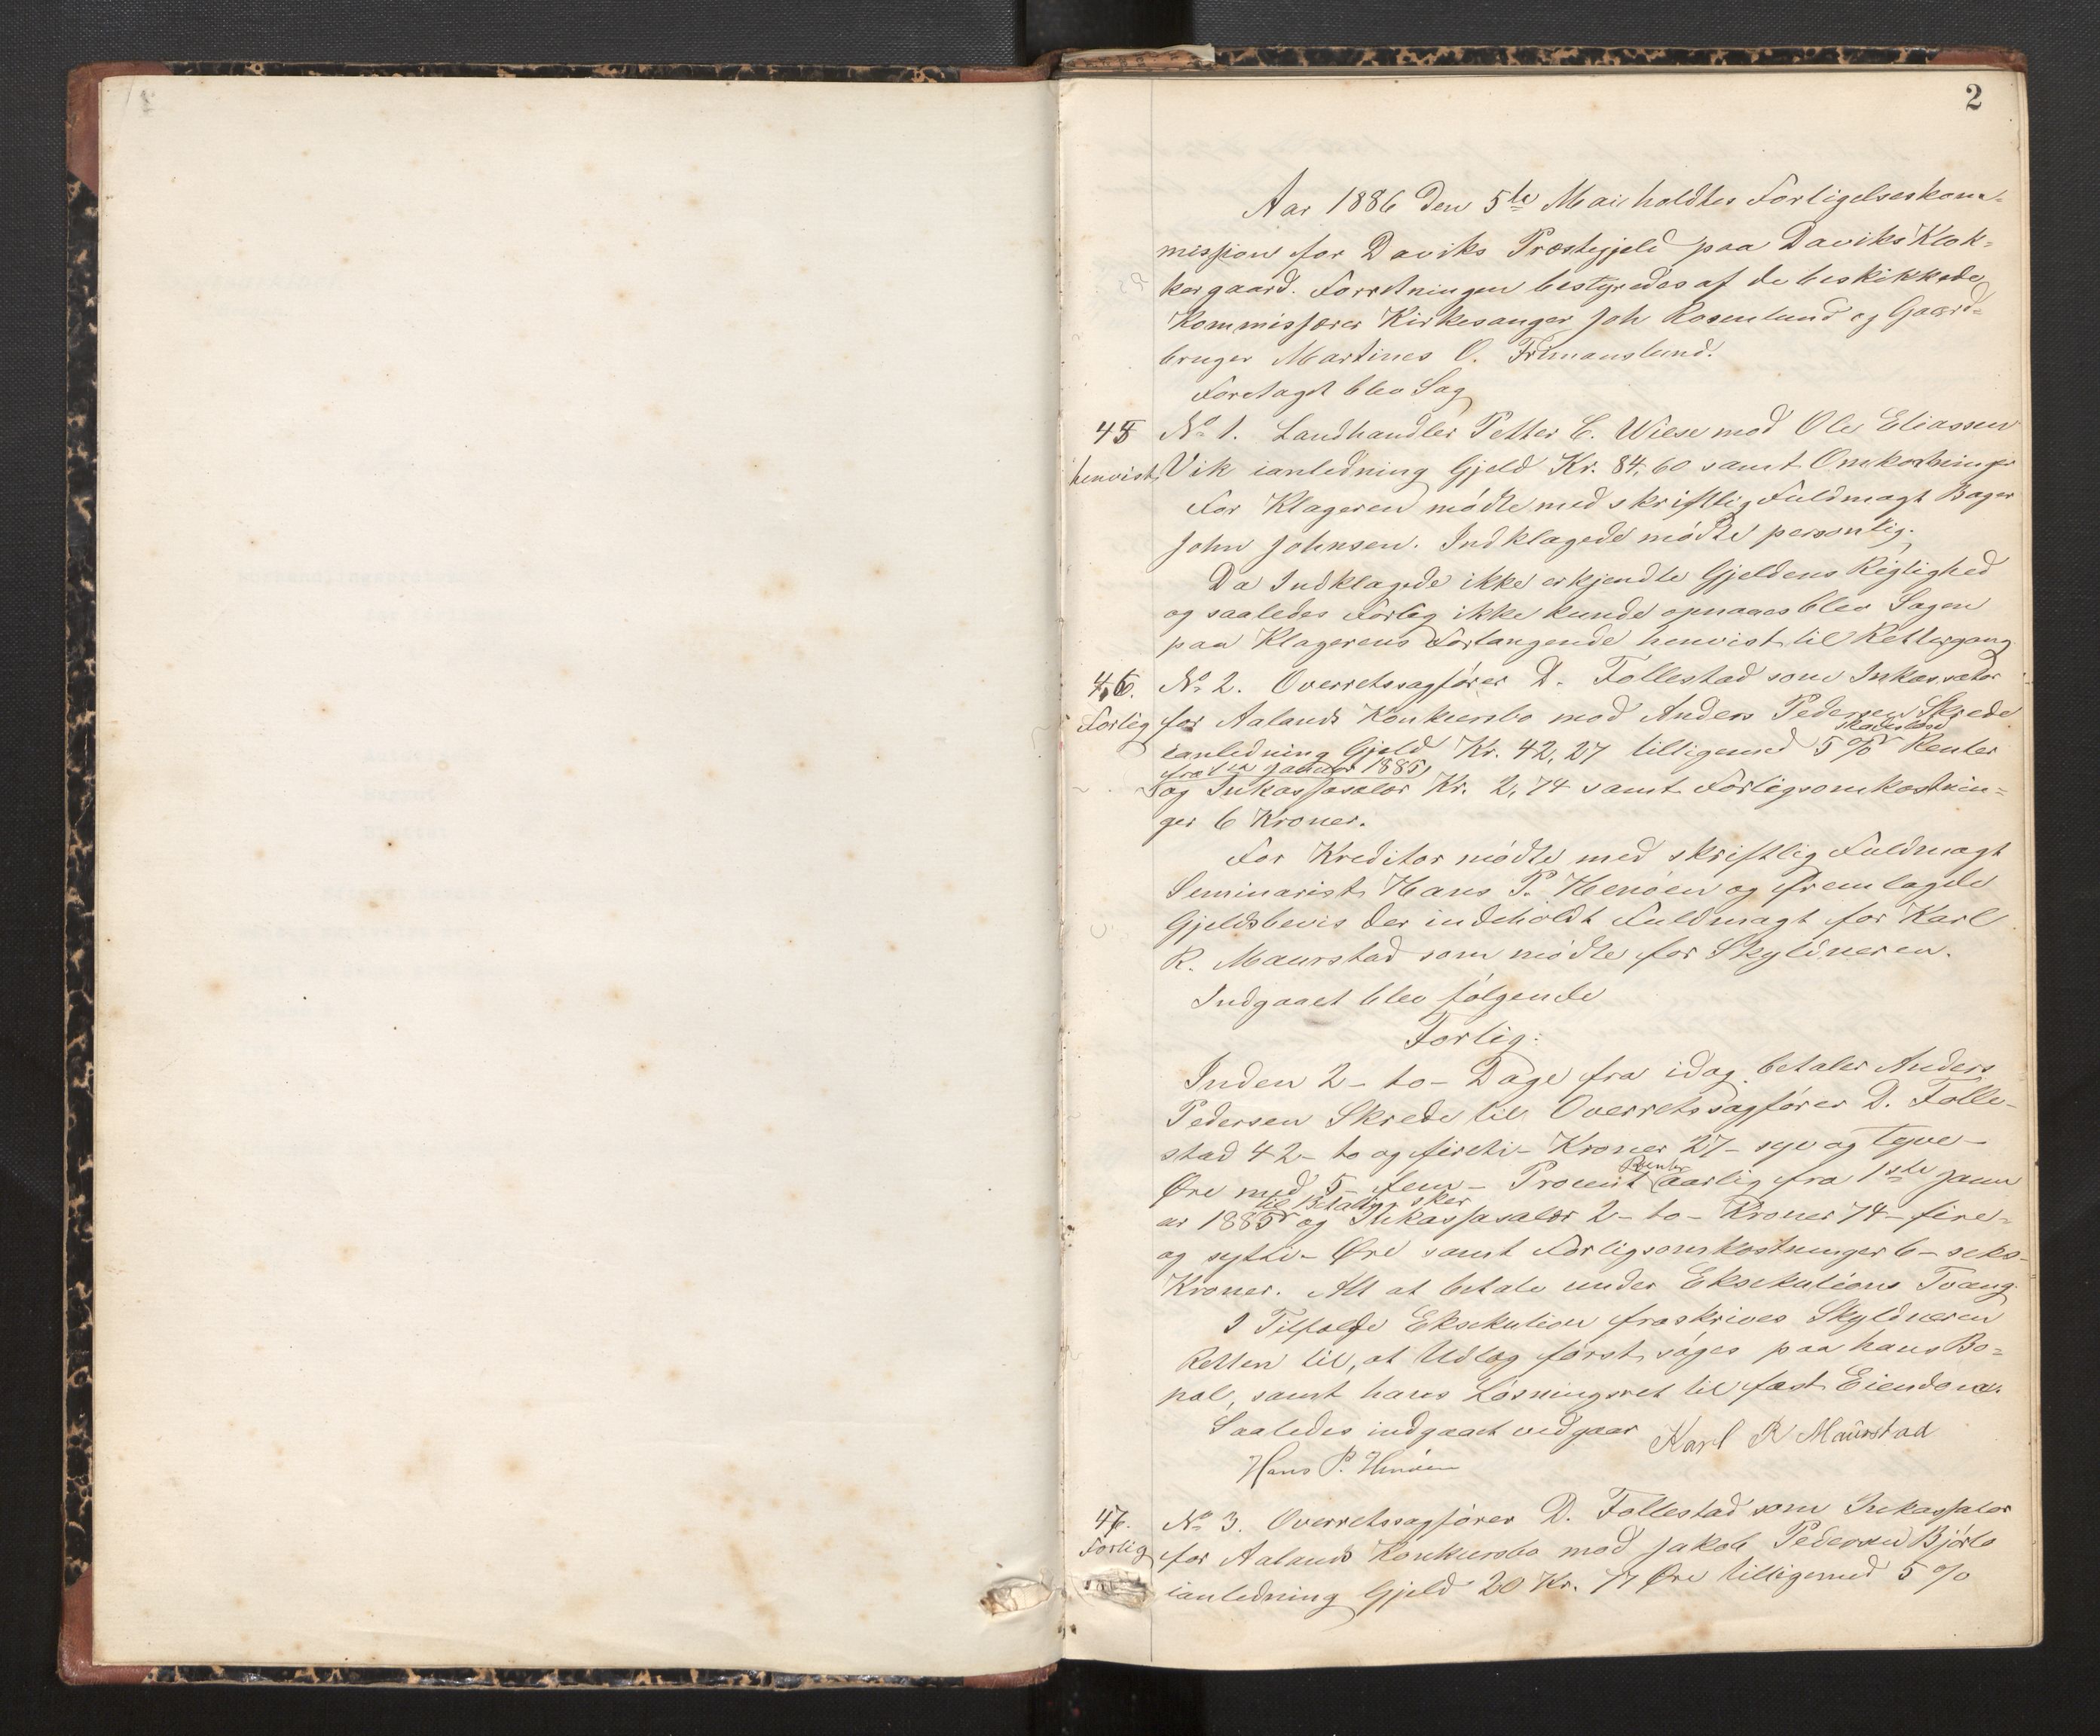 2
Aar 1886 den 5te Mai holdtes Forligelseskom-
mission for Daviks Præstegjeld paa Daviks Klok-
kergaard. Forretningen bestyredes af de beskikkede
Kommissærer Kirkesanger Joh Rosenlund og Gaard-
bruger Martines O.
Foretagt blev Sag
45 No 1. Landhandler Petter C. Wiese mod Ole Eliassen
henvist Vik ianledning Gjeld Kr. 84,60 samt Omkostninger
For Klageren mödte med skriftlig Fuldmagt Bager
John Johnsen. Indklagede mödte personlig.
Da Indklagede ikke erkjendte Gjeldens Rigtighed
og saaledes Forlig ikke kunde opnaaes blev Sagen
paa Klagerens Forlangende henvist til Rettergang
46. No 2. Overretssagförer D. Follestad som Inkassator
Forlig for Aalands Konkursbo mod Anders Pedersen Skrede
ianledning Gjeld Kr. 42,27 tilligemed 5% Renter
fra 1ste Januar 1885
og Inkassosalær Kr. 2,74 samt Forligsomkostnin-
ger 6 Kroner.
For Kreditor mödte med skriftlig Fuldmagt
Seminarist Hans P. Henöen og fremlagde
Gjeldsbevis der indeholdt Fuldmagt for Karl
R. Maurstad som mödte for Skyldneren.
Indgaaet blev fölgende
Forlig:
Inden 2- to- Dage fra idag betaler Anders
Pedersen Skrede til Overretssagförer D. Folle-
stad 42- to og firti- Kroner 27- syv og tyve-
Renter
Öre med 5- fem- Procent aarlig fra 1ste Janu
til Betaling sker
ar 1885 og Inkassosalær 2- to- Kroner 74- fire-
og sytti- Öre samt Forligsomkostninger 6- seks-
Kroner. Alt at betale under Eksekutions Tvang
I Tilfælde Eksekution fraskrives Skyldneren
Retten til, at Udlæg först söges paa hans Bo-
pæl, samt hans Lösningsret til fast Eiendom.
Saaledes indgaaet vedgaar Karl R Maurstad
Hans P. Henöen
47. No 3. Overretssagförer D. Follestad som Inkassator
Forlig for Aalands Konkursbo mod Jakob Pedersen Björlo
ianledning Gjeld 20 Kr. 77 Öre tilligemed 5%